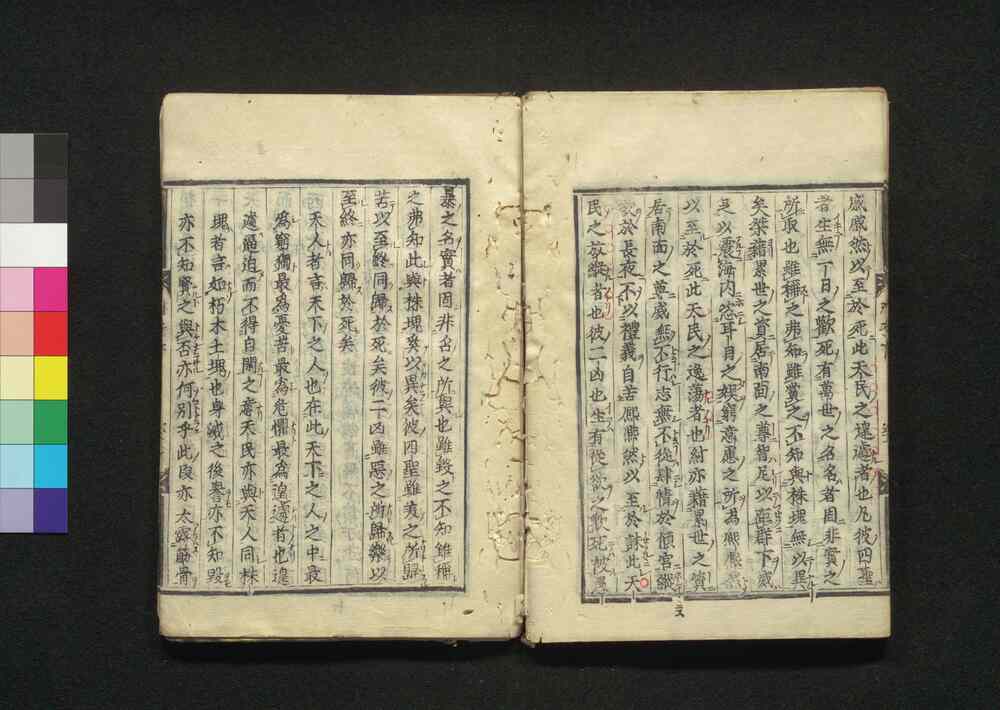 戚戚然以至於死此天民之遑遽者也凡彼四聖
者生無一日之歡死有萬世之名名者固非實之
所取也雖稱之弗知雖賞之不知與株塊無以異
矣桀藉累世之資居南面之尊智足以距群下威
足以震海内恣耳目之娯窮意慮之所為熙熙然
以至於死此天民之逸蕩者也紂亦藉累世之資
居南面之尊威無不行志無不從肆情於傾宮縱
欲於長夜不以禮義自苦熙熙然以至於誅此天
民之放縱者也彼二凶也生有從欲之歡死被愚
暴之名實者固非名之所與也雖毀之不知雖稱
之弗知此與株塊奚以異矣彼四聖雖美之所歸
苦以至終同歸於死矣彼二凶雖惡之所歸樂以
至終亦同歸於死矣
天人者言天下之人也在此天下之人之中最
為窮獨最為憂苦最為危懼最為遑遽者也遑
遽窘迫而不得自閑之意天民亦與天人同株
塊者言如朽木土塊也身滅之後譽亦不知毀
亦不知實之與否亦何別乎此段亦太露筋骨